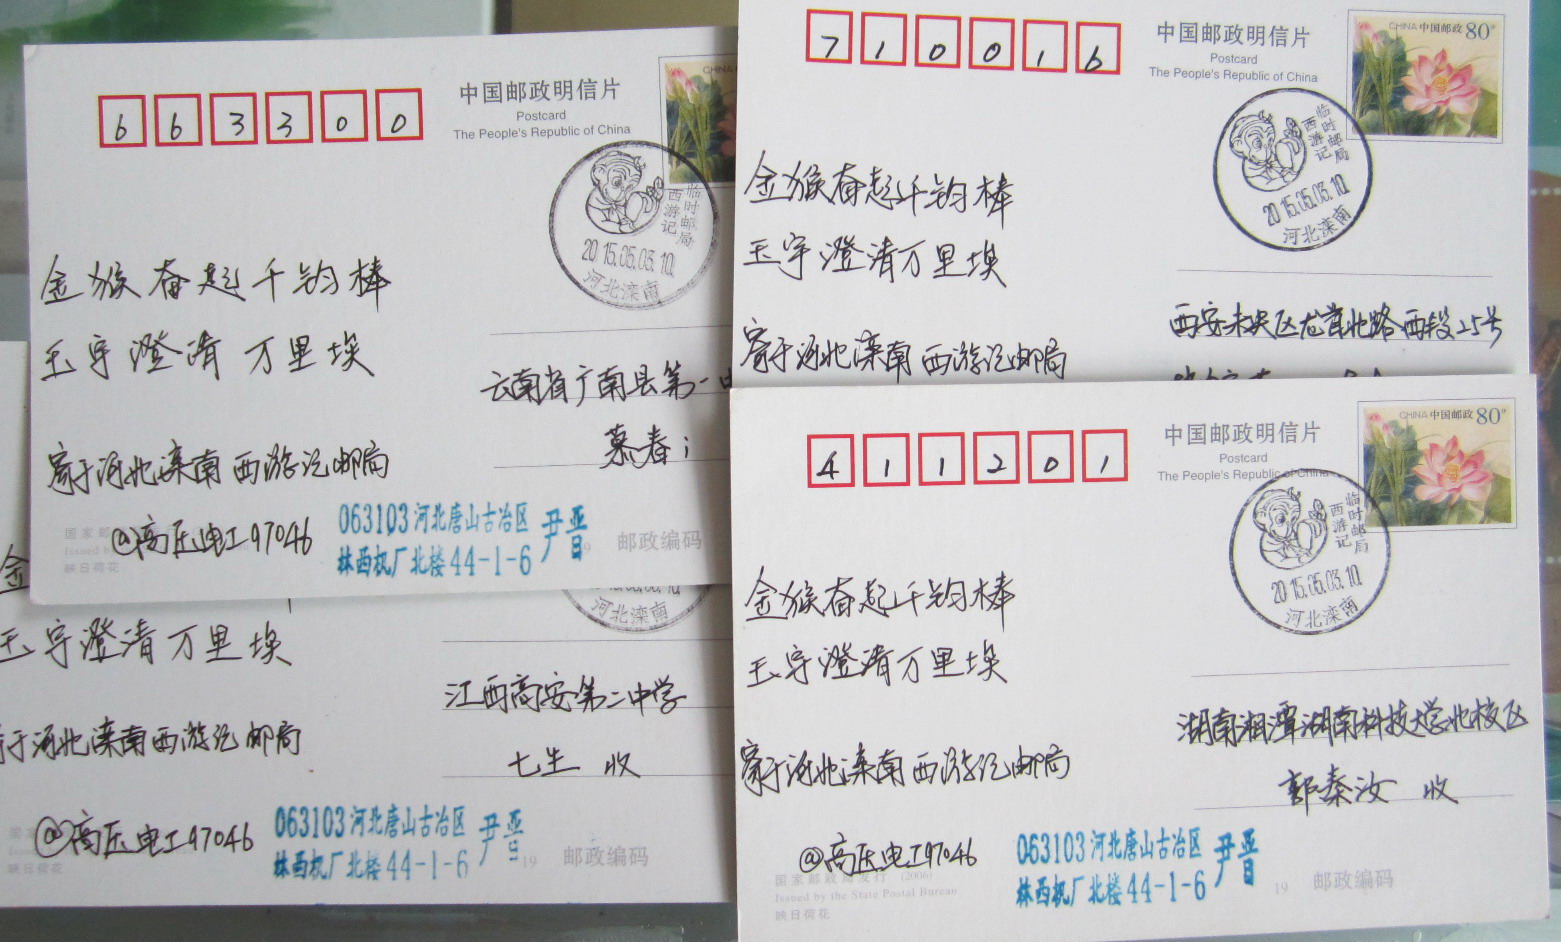 663300
中国邮政明信片
Postcard
The People's Republic of China
CHINA
临时邮局
西游记
2015.05.03.10.
河北滦南
金猴奋起千钧棒
玉宇澄清万里埃
寄于河北滦南西游记邮局
@高压电工97046
云南省广南县第一
慕春
063103河北唐山古冶区
林西机厂北楼44-1-6
尹晋
国家邮
Issued b
映日荷花
19
邮政编码
710016
中国邮政明信片
Postcard
The People's Republic of China
CHINA中国邮政80
临时邮局
西游记
2015.05.03.10.
河北滦南
金猴奋起千钧棒
玉宇澄清万里埃
寄于河北滦南西游记邮局
西安未央区龙首北路西段25号
金
玉宇澄清万里埃
寄于河北滦南西游记邮局
@高压电工97046
河北滦南
江西高安第二中学
七生 收
063103河北唐山古冶区
林西机厂北楼44-1-6
尹晋
映日荷花
19
邮政编码
411201
中国邮政明信片
Postcard
The People's Republic of China
CHINA中国邮政80
临时邮局
西游记
2015.05.03.10.
河北滦南
金猴奋起千钧棒
玉宇澄清万里埃
寄于河北滦南西游记邮局
@高压电工97046
湖南湘潭湖南科技大学北校区
郭秦汝 收
063103河北唐山古冶区
林西机厂北楼44-1-6
尹晋
国家邮政局发行 (2006)
Issued by the State Postal Bureau
映日荷花
19
邮政编码